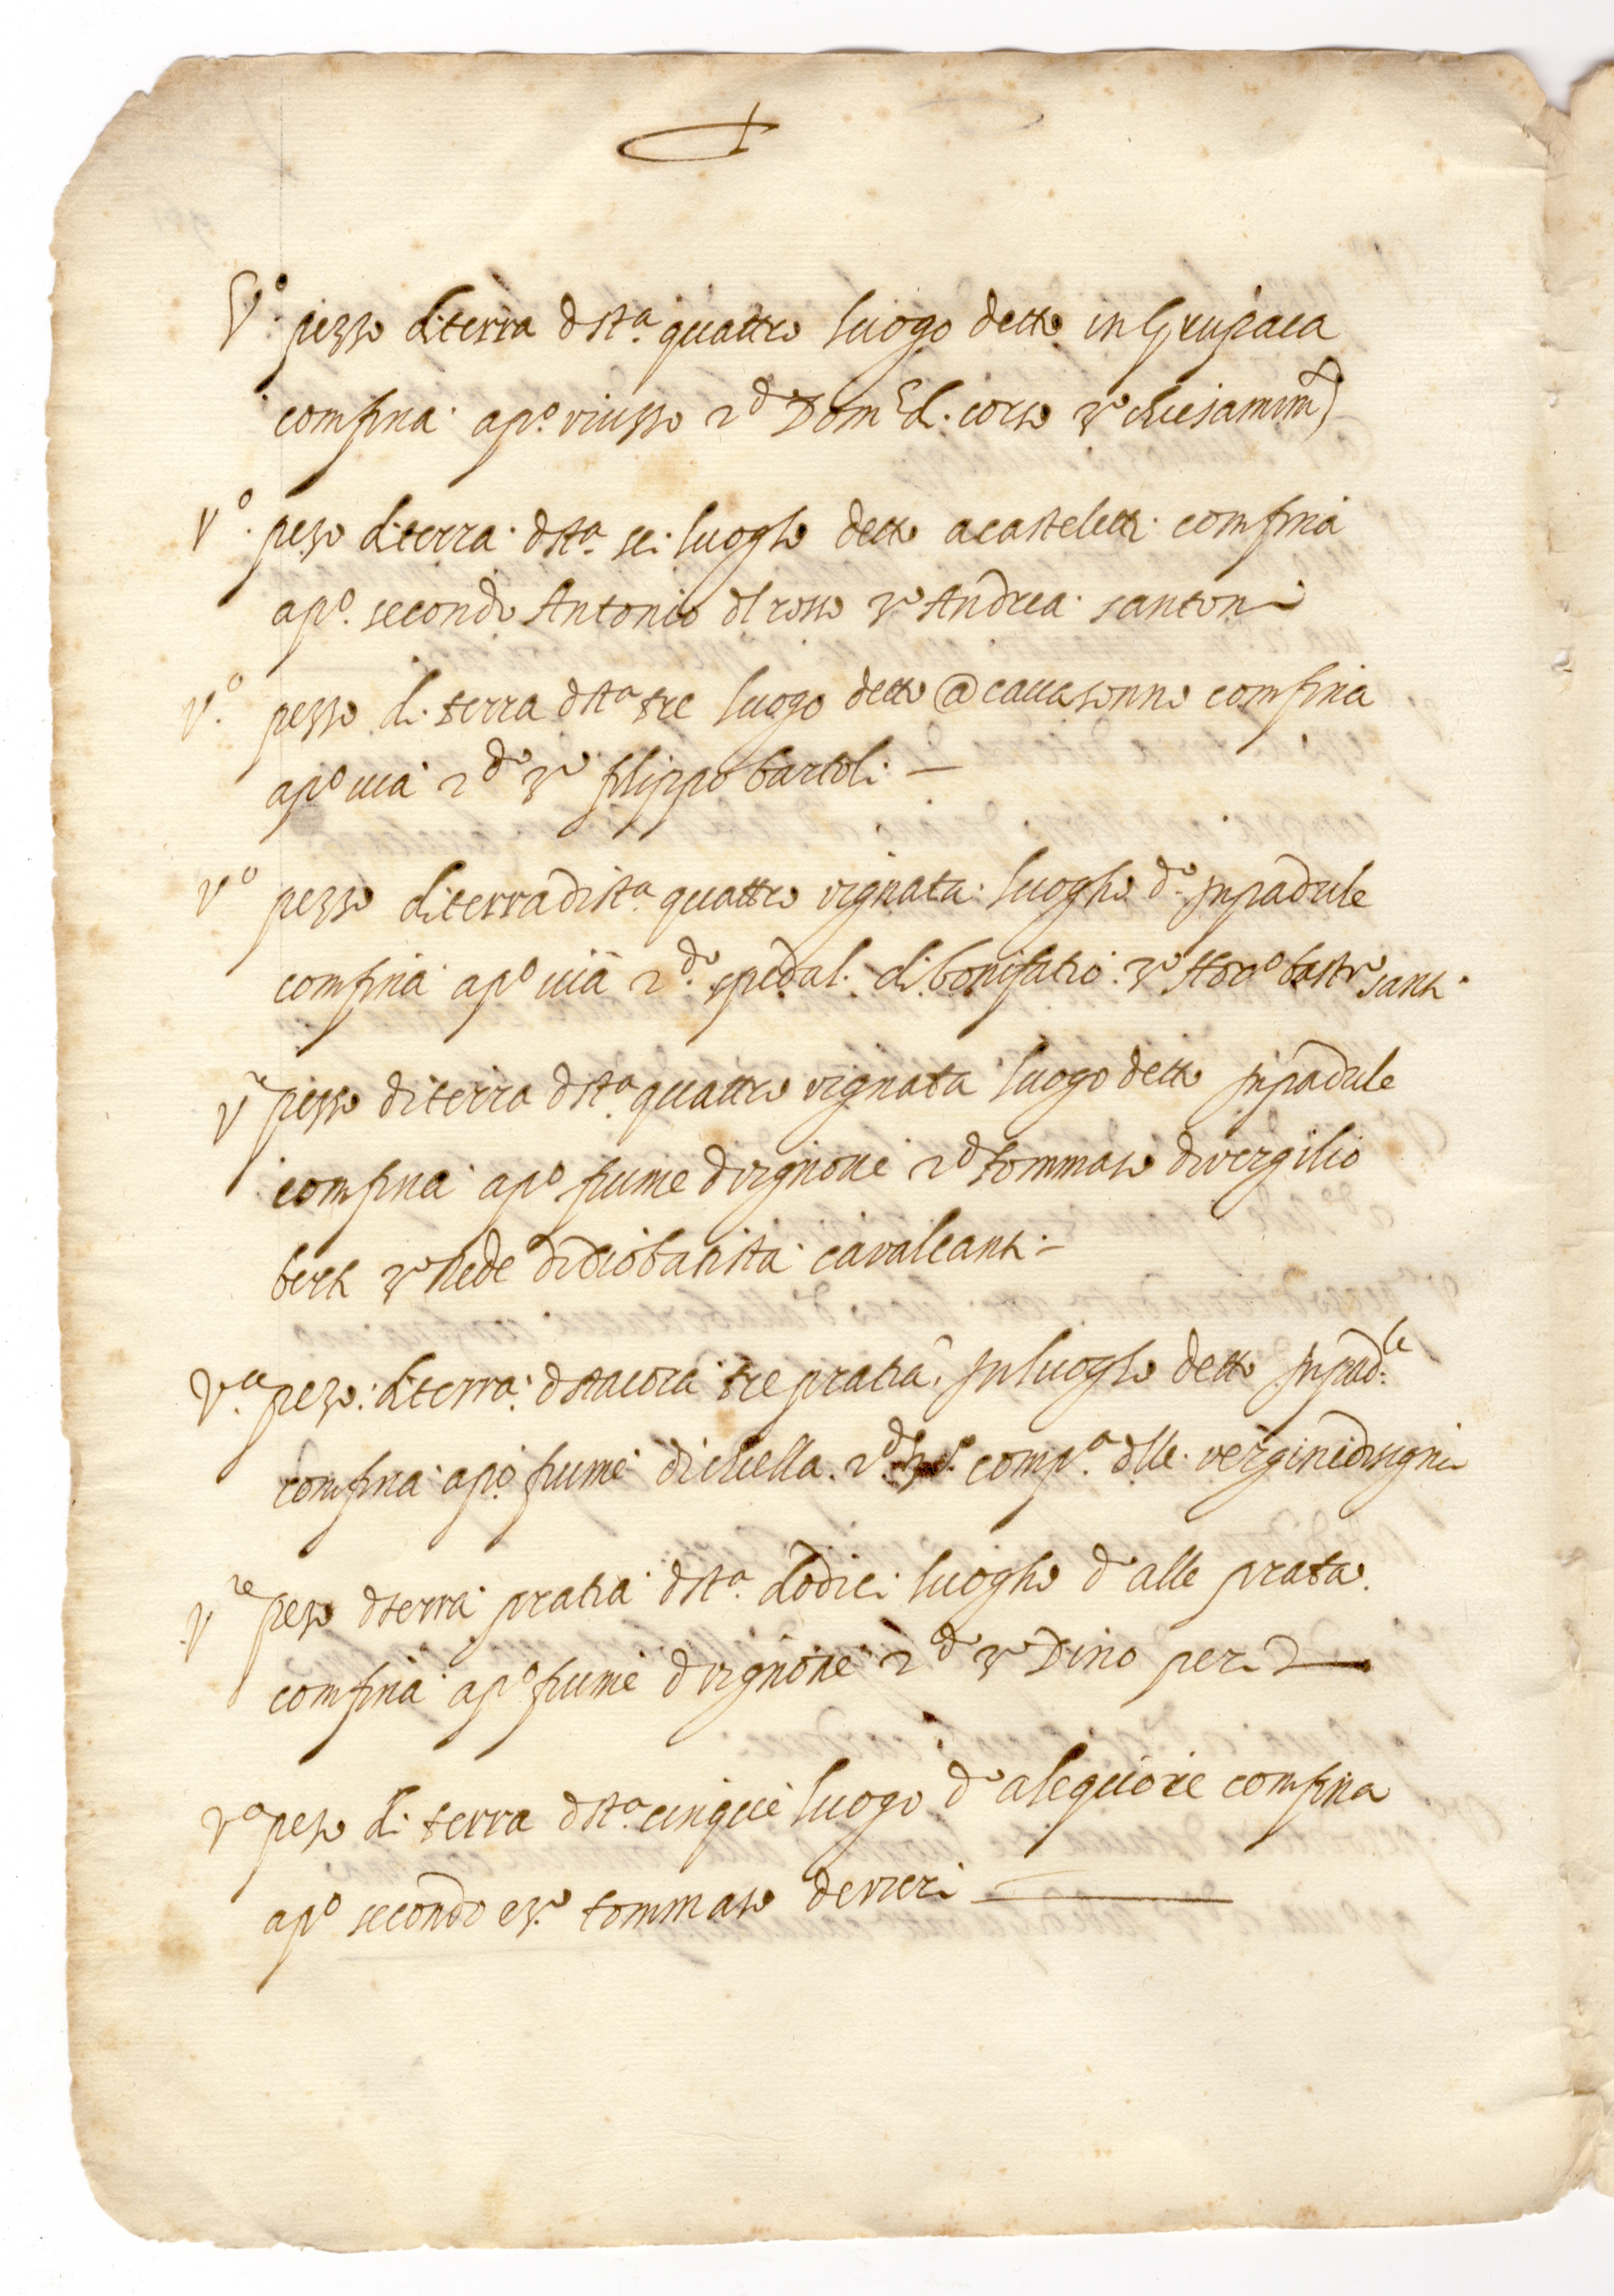 V.o pezzo diterra dsta quattro luogo detto in
confina apo viuzzo 2d Dom.co d. corso 3o
Vo. pezo diterra dsta sei luogho detto acasteletti confina
apo. secondo Antonio dl rosso 3o Andrea santoni
V.o pezzo di terra dsta tre luogo detto @ cacasonno confina
apo via 2do 3o filippo bartoli —
Vo pezzo diterra dista quattro vignata luogho do inpadule
confina apo via 2do spedal. di bonifatio 3o
Vo pezzo diterra dsta quattro vignata luogo detto inpadule
confina apo fiume dvignone 2d tommaso divergilio
berti 3o rede digiobatista cavalcanti –
V. pezo diterra dstaiora tre pratia inluogho detto inpad.le
confina apo fiume dichiella 2d comp.a dlle vergine dsigni
V pezo dterra pratia dsta dodici luogho do alle prata
confina apo fiume dvignone 2do 3o Dino peri
Vo pezo di terra dsta cinque luogo do alequiore confina
apo secondo e 3o tommaso devieri